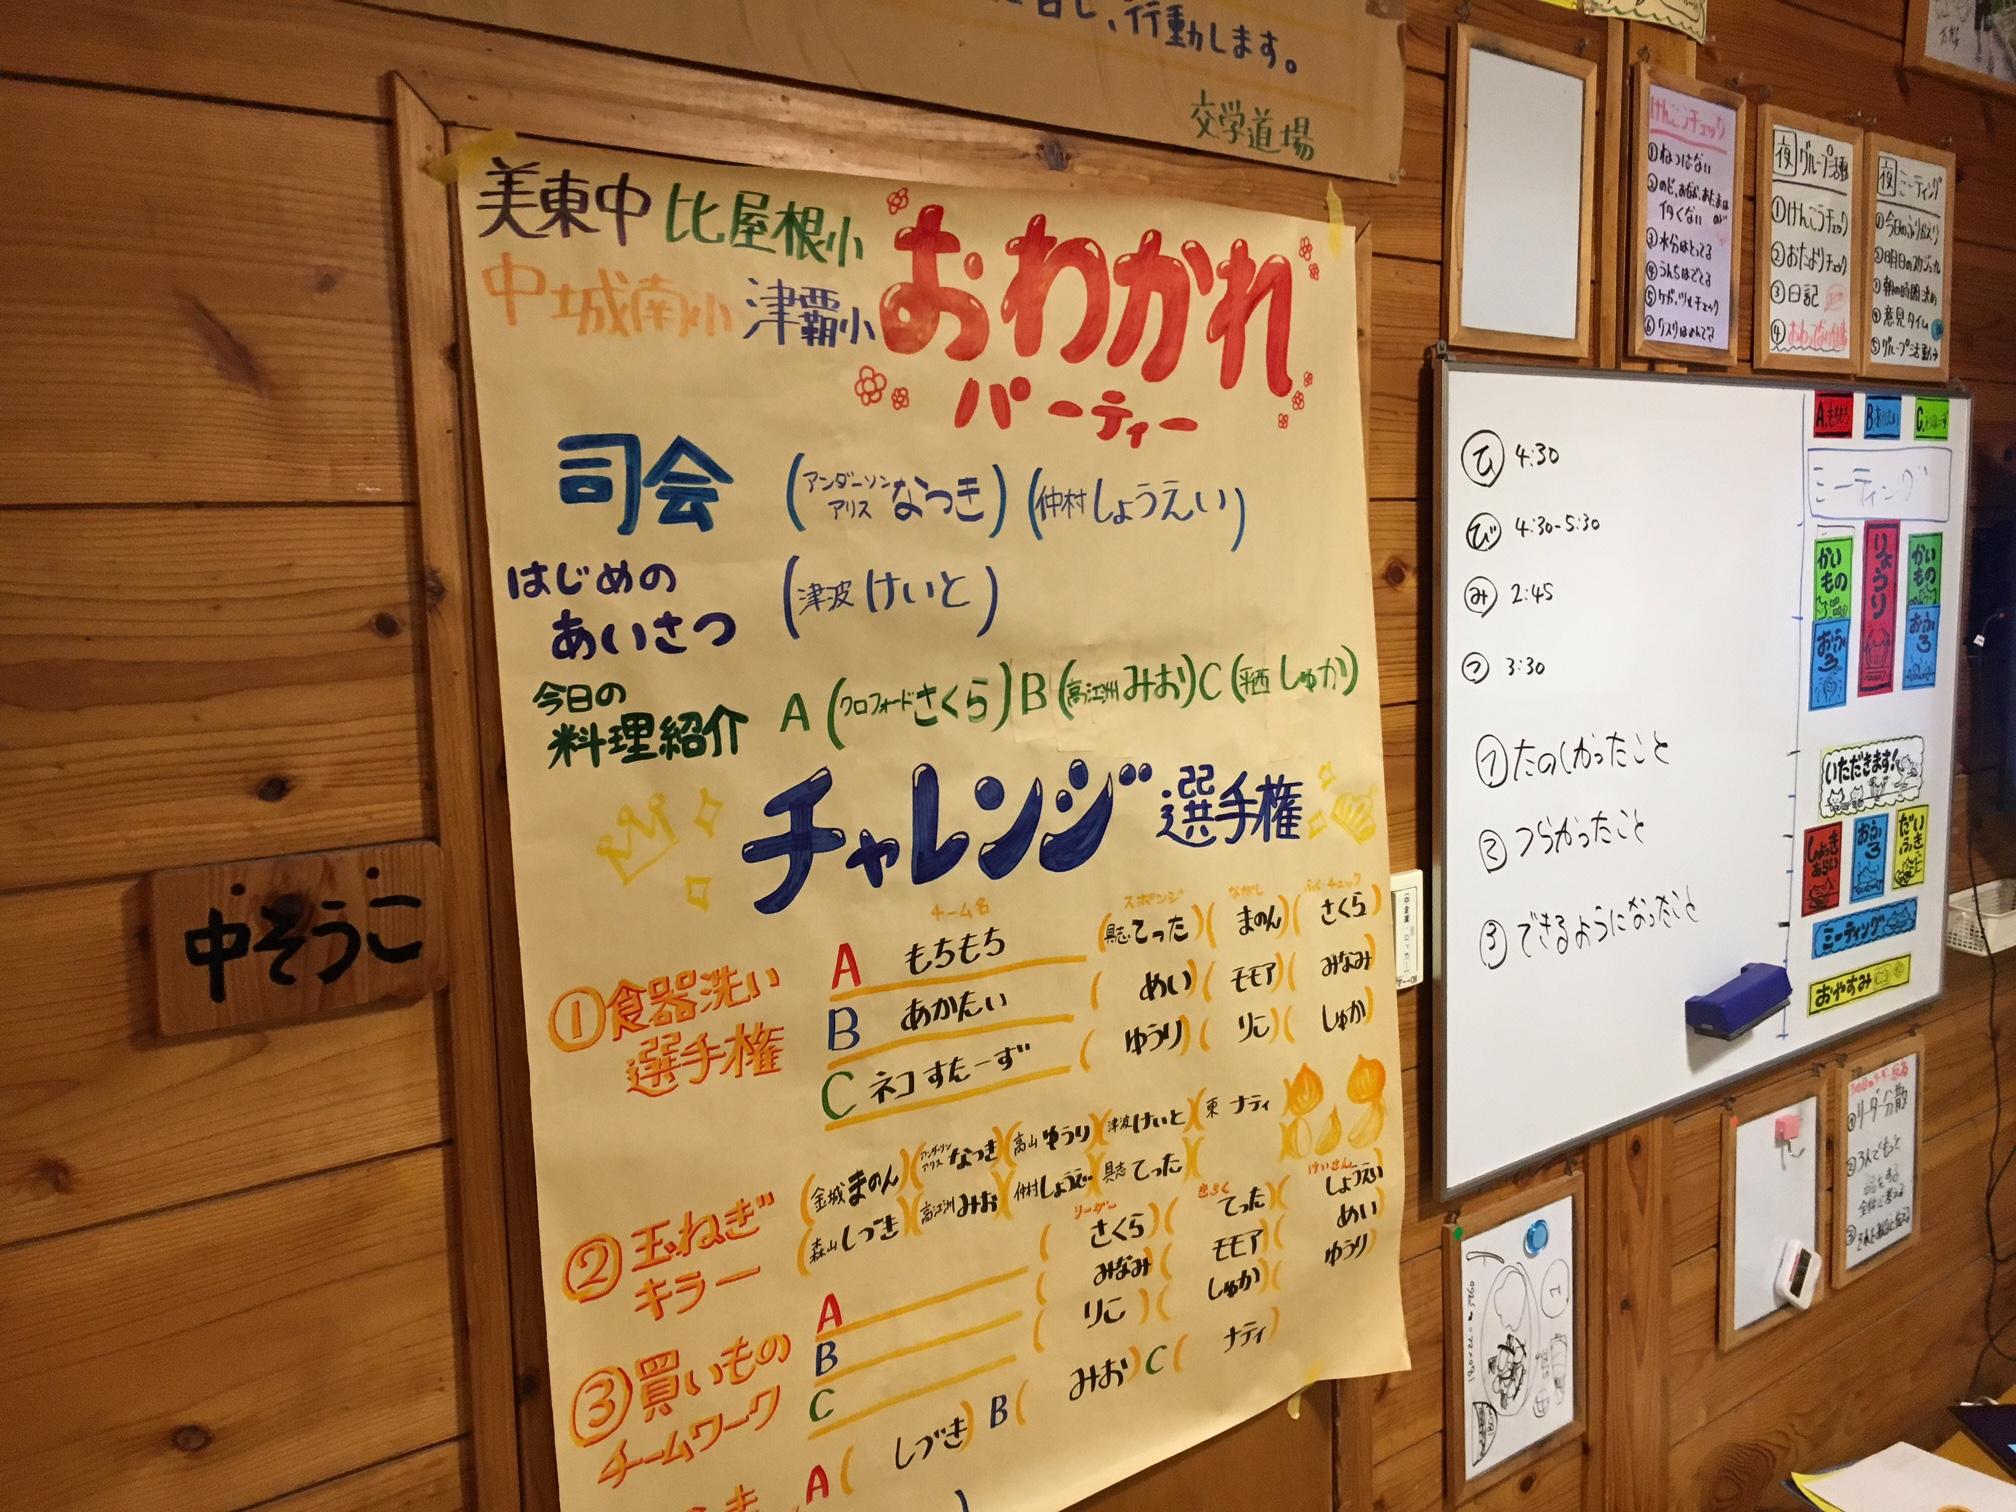 に日し、行動します。
交学道場
美東中 比屋根小
中城南小 津覇小
おわかれ
パーティー
司会 (アンダーソン アリス なつき) (仲村 しょうえい)
はじめの
あいさつ (津波 けいと)
今日の
料理紹介 A (クロフォード さくら) B (高江洲 みお) C ( しゅか)
チャレンジ 選手権
チーム名 スポンジ ながし ふく・チェック
①食器洗い
選手権
A もちもち (具志 てった) (まのん) (さくら)
B あかたい (めい) (モモア) (みなみ)
C ネコすたーず (ゆうり) (りこ) (しゅか)
②玉ねぎ
キラー
(金城 まのん) (アンダーソン アリス なつき) (高山 ゆうり) (津波 けいと) (東 ナティ
(森山 しづき) (高江洲 みお) (仲村 しょうえい) (具志 てった) (
③買いもの
チームワーク
リーダー きろく けいさん
A (さくら) (てった) (しょうえい
B (みなみ) (モモア) (めい
C (りこ) (しゅか) (ゆうり)
A (しづき) B (みお) C (ナティ)
中そうこ
けんこうチェック
①ねつはない
②のど、おなか、あたまは
イタくない
③水分はとってる
④うんちはでてる
⑤ケガ、ツメチェック
⑥クスリはのんでる
夜 グループ活動
①けんこうチェック
②おたよりチェック
③日記
④
夜 ミーティング
①今日のふりかえり
②明日のスケジュール
③朝の時間決め
④意見タイム
⑤グループ活動へ
ひ 4:30
び 4:30-5:30
み 2:45
つ 3:30
①たのしかったこと
②つらかったこと
③できるようになったこと
A.もちもち B.あかたい C.ネコすたーず
ミーティング
かいもの
りょうり
かいもの
おふろ
おふろ
いただきます!
しょっきあらい
おふろ
だいふき
ミーティング
おやすみ
①リーダー分散
②3人でもっと